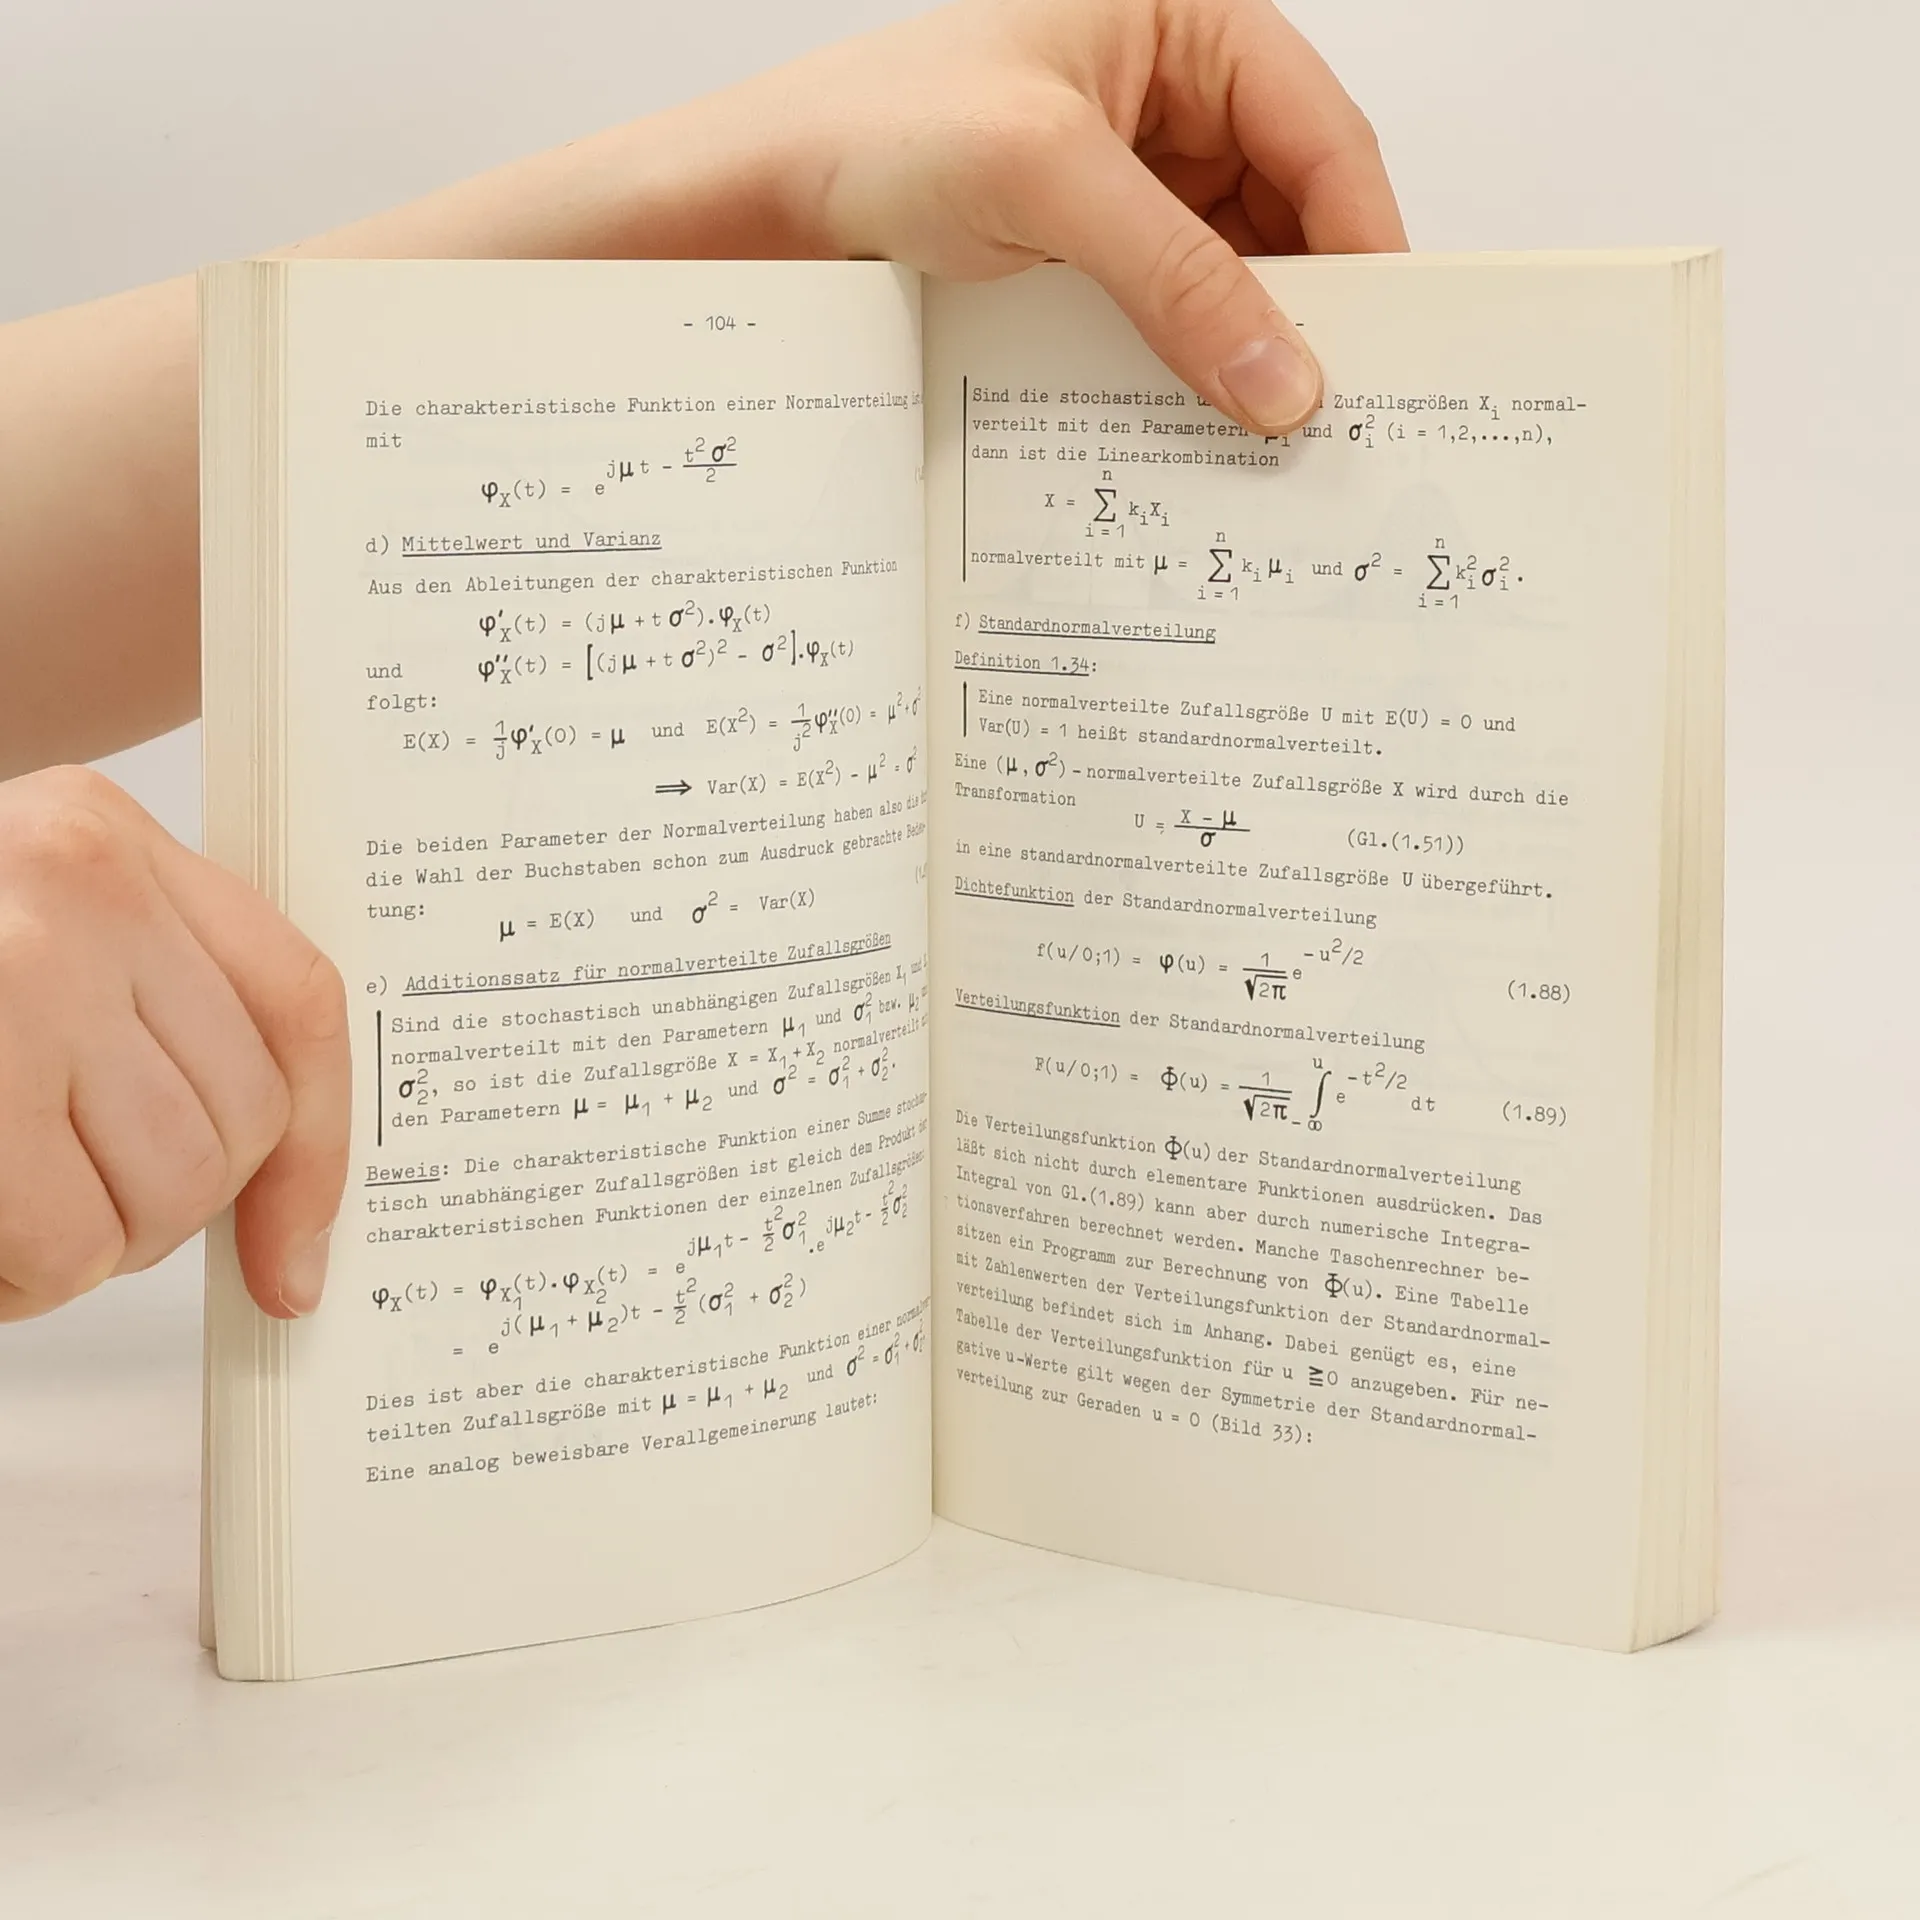 - 104 -
Die charakteristische Funktion einer Normalverteilung
mit
φ_X(t) = e^{jμt - t²σ²/2}
d) Mittelwert und Varianz
Aus den Ableitungen der charakteristischen Funktion
φ'_X(t) = (jμ + tσ²).φ_X(t)
und φ''_X(t) = [(jμ + tσ²)² - σ²].φ_X(t)
folgt:
E(X) = 1/j φ'_X(0) = μ und E(X²) = 1/j² φ''_X(0) = μ² + σ²
⟹ Var(X) = E(X²) - μ² = σ²
Die beiden Parameter der Normalverteilung haben also die
die Wahl der Buchstaben schon zum Ausdruck gebrachte Bedeu-
tung:
μ = E(X) und σ² = Var(X)
e) Additionssatz für normalverteilte Zufallsgrößen
Sind die stochastisch unabhängigen Zufallsgrößen X₁ und
normalverteilt mit den Parametern μ₁ und σ₁² bzw. μ₂
σ₂², so ist die Zufallsgröße X = X₁ + X₂ normalverteilt
den Parametern μ = μ₁ + μ₂ und σ² = σ₁² + σ₂².
Beweis: Die charakteristische Funktion einer Summe stochas-
tisch unabhängiger Zufallsgrößen ist gleich dem Produkt der
charakteristischen Funktionen der einzelnen Zufallsgrößen:
φ_X(t) = φ_{X₁}(t).φ_{X₂}(t) = e^{jμ₁t - t²/2 σ₁²}.e^{jμ₂t - t²/2 σ₂²}
= e^{j(μ₁ + μ₂)t - t²/2 (σ₁² + σ₂²)}
Dies ist aber die charakteristische Funktion einer normalver-
teilten Zufallsgröße mit μ = μ₁ + μ₂ und σ² = σ₁² + σ₂².
Eine analog beweisbare Verallgemeinerung lautet:
-
Sind die stochastisch Zufallsgrößen X_i normal-
verteilt mit den Parametern μ_i und σ_i² (i = 1,2,...,n),
dann ist die Linearkombination
X = ∑_{i=1}^{n} k_i X_i
normalverteilt mit μ = ∑_{i=1}^{n} k_i μ_i und σ² = ∑_{i=1}^{n} k_i² σ_i².
f) Standardnormalverteilung
Definition 1.34:
Eine normalverteilte Zufallsgröße U mit E(U) = 0 und
Var(U) = 1 heißt standardnormalverteilt.
Eine (μ, σ²) - normalverteilte Zufallsgröße X wird durch die
Transformation
U = (X - μ)/σ (Gl.(1.51))
in eine standardnormalverteilte Zufallsgröße U übergeführt.
Dichtefunktion der Standardnormalverteilung
f(u/0;1) = φ(u) = 1/√2π e^{-u²/2} (1.88)
Verteilungsfunktion der Standardnormalverteilung
F(u/0;1) = Φ(u) = 1/√2π ∫_{-∞}^{u} e^{-t²/2} dt (1.89)
Die Verteilungsfunktion Φ(u) der Standardnormalverteilung
läßt sich nicht durch elementare Funktionen ausdrücken. Das
Integral von Gl.(1.89) kann aber durch numerische Integra-
tionsverfahren berechnet werden. Manche Taschenrechner be-
sitzen ein Programm zur Berechnung von Φ(u). Eine Tabelle
mit Zahlenwerten der Verteilungsfunktion der Standardnormal-
verteilung befindet sich im Anhang. Dabei genügt es, eine
Tabelle der Verteilungsfunktion für u ≧ 0 anzugeben. Für ne-
gative u-Werte gilt wegen der Symmetrie der Standardnormal-
verteilung zur Geraden u = 0 (Bild 33):